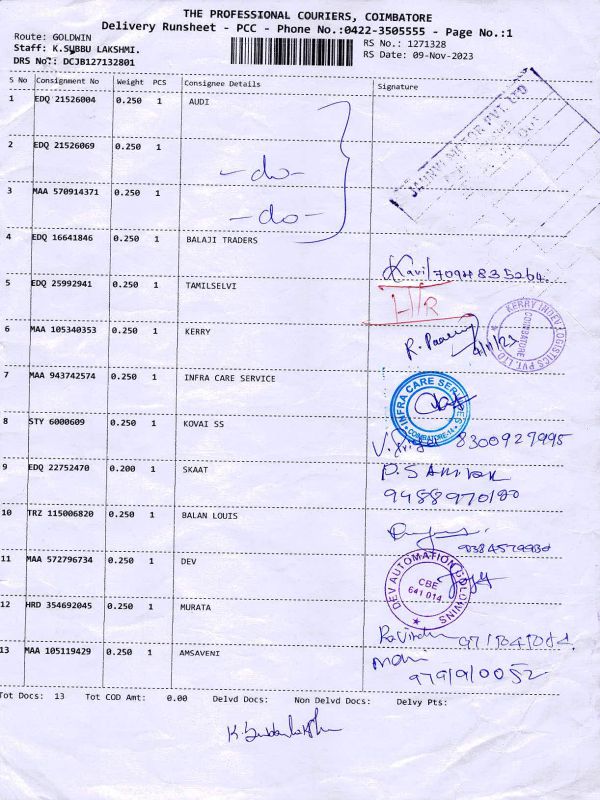 THE PROFESSIONAL COURIERS, COIMBATORE
Delivery Runsheet - PCC - Phone No.:0422-3505555 - Page No.:1
Route: GOLDWIN
Staff: K.SUBBU LAKSHMI.
DRS No: DCJB127132801
RS No.: 1271328
RS Date: 09-Nov-2023
S No Consignment No Weight PCS Consignee Details Signature
1 EDQ 21526004 0.250 1 AUDI
2 EDQ 21526069 0.250 1 -do-
3 MAA 570914371 0.250 1 -do-
4 EDQ 16641846 0.250 1 BALAJI TRADERS
5 EDQ 25992941 0.250 1 TAMILSELVI
6 MAA 105340353 0.250 1 KERRY
KERRY INDEV LOGISTICS PVT. LTD
COIMBATORE
7 MAA 943742574 0.250 1 INFRA CARE SERVICE
INFRA CARE SERVICES
COIMBATORE-14
8 STY 6000609 0.250 1 KOVAI SS
8300927995
9 EDQ 22752470 0.200 1 SKAAT
10 TRZ 115006820 0.250 1 BALAN LOUIS
11 MAA 572796734 0.250 1 DEV
DEV AUTOMATION GOLDWINS
CBE
641 014
12 HRD 354692045 0.250 1 MURATA
13 MAA 105119429 0.250 1 AMSAVENI
Tot Docs: 13 Tot COD Amt: 0.00 Delvd Docs: Non Delvd Docs: Delvy Pts: